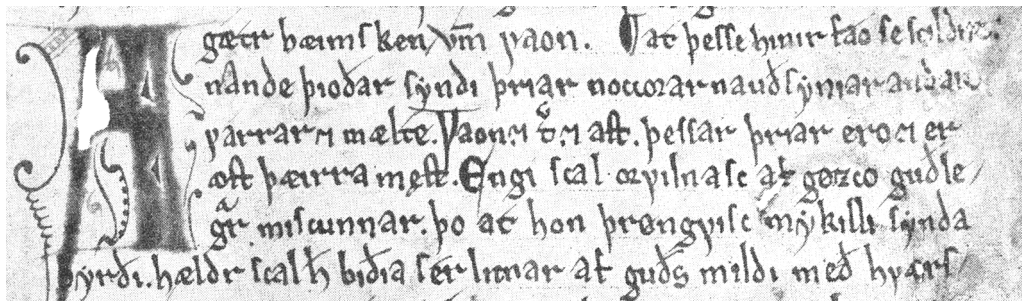 Agætr vm vaon. at þesse
nande þioðar syndi þriar noccorar nauðsyniar
varrar ⁊ mælte. Vaon. ⁊ ⁊ ast. þessar þriar ero ⁊ er
æst þæirra mest. Engi scal orvilnasc at gøzco guðle
gr miscunnar. þo at hon þrøngvisc mykilli synda
byrði. hældr scal h̅ biðia ser licnar at guðs mildi með hværs